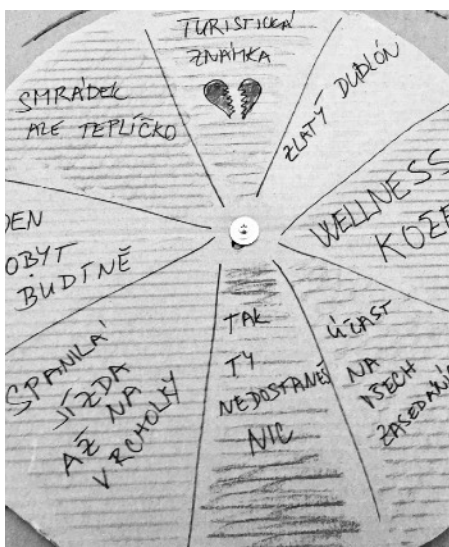 TURISTICKÁ
ZNÁMKA
ZLATÝ DUBLÓN
WELLNESS
KOŽE
ÚČAST
NA
VŠECH
ZASEDÁNÍC
TAK
TY
NEDOSTANEŠ
NIC
SPANILÁ
JÍZDA
AŽ NA
VRCHOLKY
DEN
POBYT
BUDÍNĚ
SMRÁDEK
ALE TEPLÍČKO